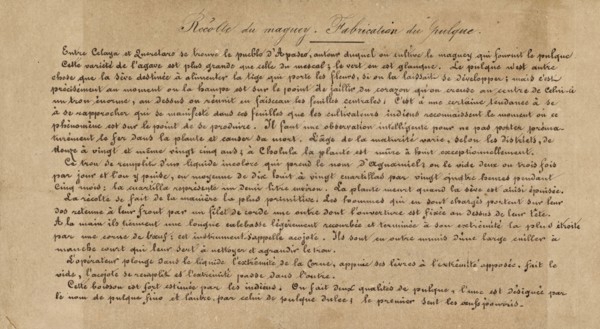 Récolte du maguey. Fabrication du Pulque.
Entre Celaya et Queretaro se trouve le pueblo d'Apaseo, autour duquel on cultive le maguey qui fournit le pulque
Cette variété de l'agave est plus grande que celle du mescal; le vert en est glauque. Le pulque n'est autre
chose que la sève destinée à alimenter la tige qui porte les fleurs, si on la laissait se développer; mais c'est
précisément au moment où la hampe est sur le point de jaillir du coeur qu'on creuse au centre de celui-ci
un trou énorme, au dessus on réunit en faisceau les feuilles centrales; C'est à une certaine tendance à se
à se rapprocher qui se manifeste dans ces feuilles que les cultivateurs indiens reconnaissent le moment où ce
phénomène est sur le point de se produire. Il faut une observation intelligente pour ne pas porter préma-
tûrément le fer dans la plante et causer sa mort. L'âge de la maturité varie, selon les districts, de
douze à vingt et même vingt cinq ans; à Cholula la plante est mûre à huit exceptionnellement.
Ce trou se remplit d'un liquide incolore qui prend le nom d'Aguamiel; on le vide deux ou trois fois
par jour et l'on y puise, en moyenne de dix huit à vingt cuartillas par vingt quatre heures pendant
cinq mois; la cuartilla représente un demi litre environ. La plante meurt quand la sève est ainsi épuisée.
La récolte se fait de la manière la plus primitive. Les hommes qui en sont chargés portent sur leur
dos retenue à leur front par un filet de corde une outre dont l'ouverture est fixée au dessus de leur tête.
A la main ils tiennent une longue calebasse légèrement recourbée et terminée à son extrémité la plus étroite
par une corne de boeuf; cet instrument s'appelle acojote. Ils sont en outre munis d'une large cuiller à
manche court qui leur sert à nettoyer et agrandir le trou.
L'opérateur plonge dans le liquide l'extrémité de la corne, appuie ses lèvres à l'extrémité opposée, fait le
vide, l'acojote se remplit et l'extrémité passe dans l'outre.
Cette boisson est fort estimée par les indiens. On fait deux qualités de pulque, l'une est désignée par
le nom de pulque fino et l'autre, par celui de pulque dulce; le premier sent les